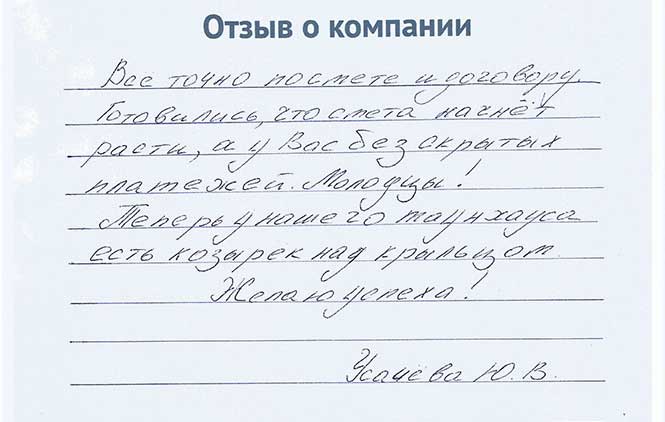 Отзыв о компании
Все точно по смете и договору.
Готовились, что смета начнёт
расти, а у Вас без скрытых
платежей. Молодцы!
Теперь у нашего таунхауса
есть козырек над крыльцом.
Желаю успеха!
Усачева Ю.В.